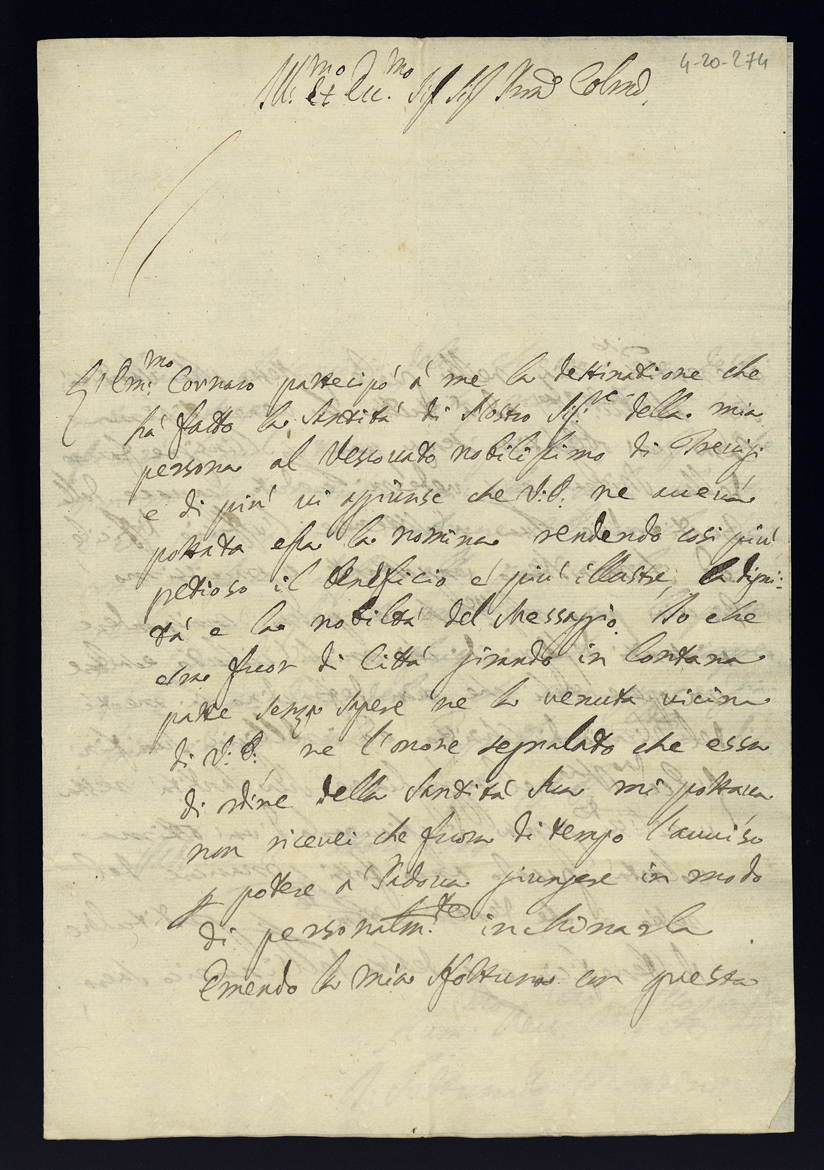 4-20-274
Ill.mo et Rev.mo Sig.r Sig.r Pron Colmo
L'Em.mo Cornaro partecipò à me la destinatione che
hà fatto la Santità di Nostro Sig.re della mia
persona al Vescovato nobilissimo di Trevigi
e di più vi aggiunse che V.S. ne aveva
portata essa la nomina rendendo così più
pretioso il beneficio e più illustre la digni-
tà e la nobiltà del Messaggio. Io che
era fuor di Città girando in lontana
parte senza sapere ne la venuta vicina
di V.S. ne l'onore segnalato che essa
di ordine della Santità Sua mi portava
non ricevei che fuora di tempo l'avviso
p potere a Padova giungere in modo
di personalm.te inchinarla
Emendo la mia sfortuna con questa